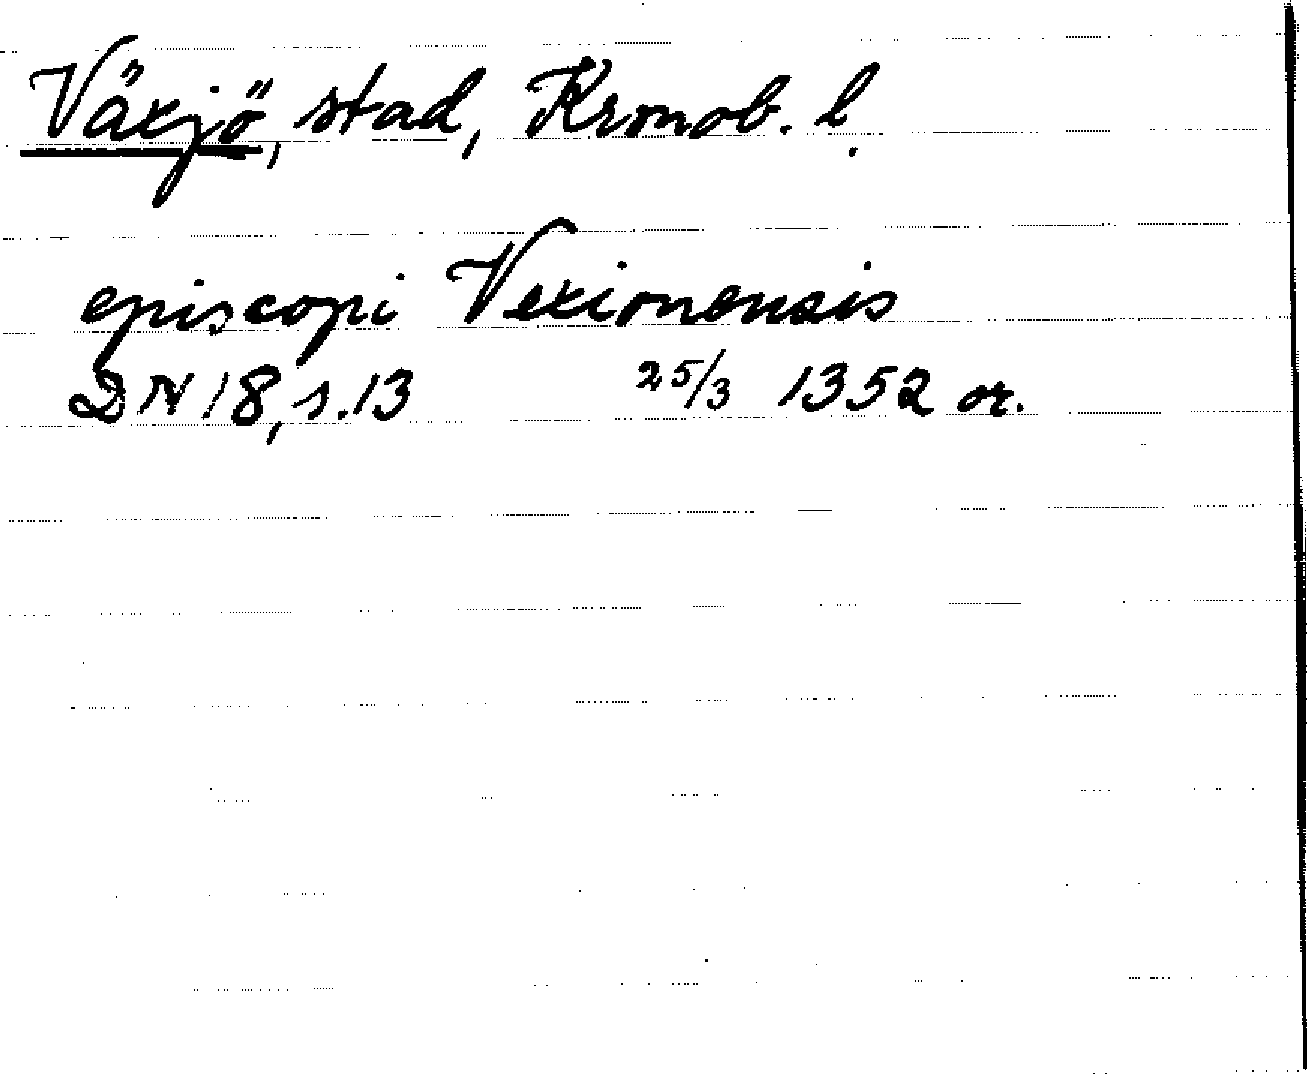 Växjö, stad, Kronob. l.
episcopi Vexionensis
DN 18, s. 13 25/3 1352 or.